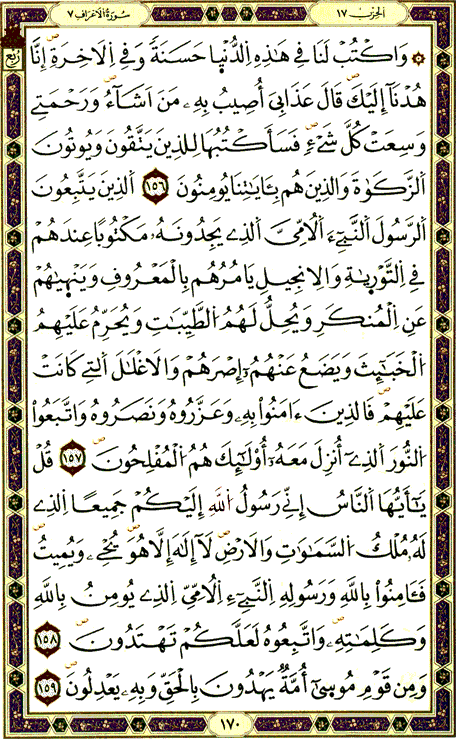 الحزب ١٧
سورة الأعراف ٧
ربع
۞ وَاكْتُبْ لَنَا فِي هَٰذِهِ الدُّنْيَا حَسَنَةً وَفِي الَاخِرَةِ إِنَّا
هُدْنَآ إِلَيْكَ قَالَ عَذَابِيَ أُصِيبُ بِهِۦ مَنَ اَشَآءُ وَرَحْمَتِے
وَسِعَتْ كُلَّ شَےْءٖ فَسَأَكْتُبُهَا لِلذِينَ يَتَّقُونَ وَيُوتُونَ
اَلزَّكَوٰةَ وَالذِينَ هُم بِـَٔايَٰتِنَا يُومِنُونَ ١٥٦ اَلذِينَ يَتَّبِعُونَ
اَلرَّسُولَ اَلنَّبِےٓءَ اَلُامِّيَّ اَلذِے يَجِدُونَهُۥ مَكْتُوبًا عِندَهُمْ
فِي اِلتَّوْرَيٰةِ وَالِانجِيلِ يَامُرُهُم بِالْمَعْرُوفِ وَيَنْهَيٰهُمْ
عَنِ اِلْمُنكَرِ وَيُحِلُّ لَهُمُ اُلطَّيِّبَٰتِ وَيُحَرِّمُ عَلَيْهِمُ
اُلْخَبَٰٓئِثَ وَيَضَعُ عَنْهُمُۥٓ إِصْرَهُمْ وَالَاغْلَٰلَ اَلتِے كَانَتْ
عَلَيْهِمْ فَالذِينَ ءَامَنُوا بِهِۦ وَعَزَّرُوهُ وَنَصَرُوهُ وَاتَّبَعُوا
اُلنُّورَ اَلذِےٓ أُنزِلَ مَعَهُۥٓ أُوْلَٰٓئِكَ هُمُ اُلْمُفْلِحُونَ ١٥٧ قُلْ
يَٰٓأَيُّهَا اَلنَّاسُ إِنِّے رَسُولُ اُللَّهِ إِلَيْكُمْ جَمِيعًا اِلذِے
لَهُۥ مُلْكُ اُلسَّمَٰوَٰتِ وَالَارْضِ لَآ إِلَٰهَ إِلَّا هُوَ يُحْيِۦ وَيُمِيتُ
فَـَٔامِنُوا بِاللَّهِ وَرَسُولِهِ اِلنَّبِےٓءِ اِلُامِّيِّ اِلذِے يُومِنُ بِاللَّهِ
وَكَلِمَٰتِهِۦ وَاتَّبِعُوهُ لَعَلَّكُمْ تَهْتَدُونَ ١٥٨
وَمِن قَوْمِ مُوسَىٰٓ أُمَّةٌ يَهْدُونَ بِالْحَقِّ وَبِهِۦ يَعْدِلُونَ ١٥٩
١٧٠